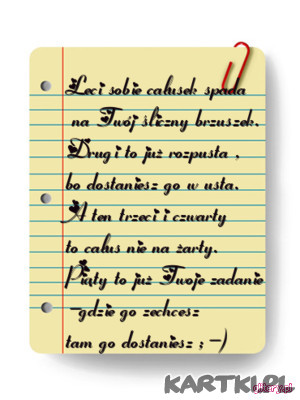 Leci sobie całusek spada
na Twój śliczny brzuszek.
Drugi to już rozpusta ,
bo dostaniesz go w usta.
A ten trzeci i czwarty
to całus nie na żarty.
Piąty to już Twoje zadanie
-gdzie go zechcesz
tam go dostaniesz ; -)
KARTKI.PL